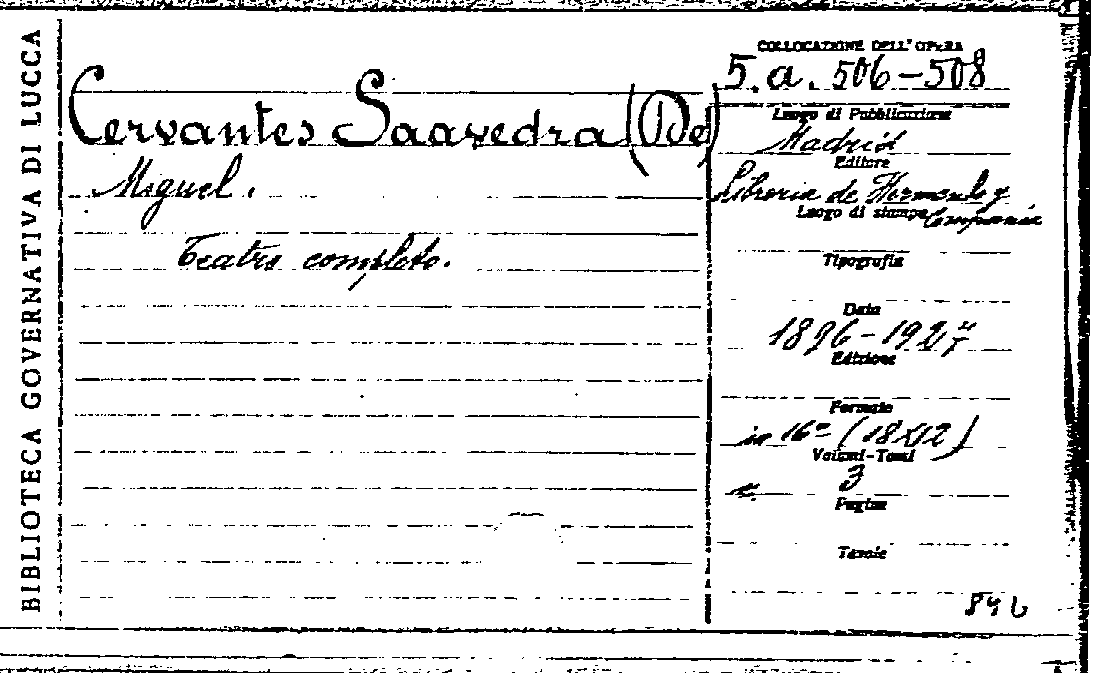 BIBLIOTECA GOVERNATIVA DI LUCCA
Cervantes Saavedra (De)
Miguel.
Teatro completo.
COLLOCAZIONE DELL'OPERA
5.a. 506-508
Luogo di Pubblicazione
Madrid
Editore
Libreria de Hernando y
Compania
Luogo di stampa
Tipografia
Data
1896-1927
Edizione
Formato
in 16° (18x12)
Volumi-Tomi
3
Pagine
Tavole